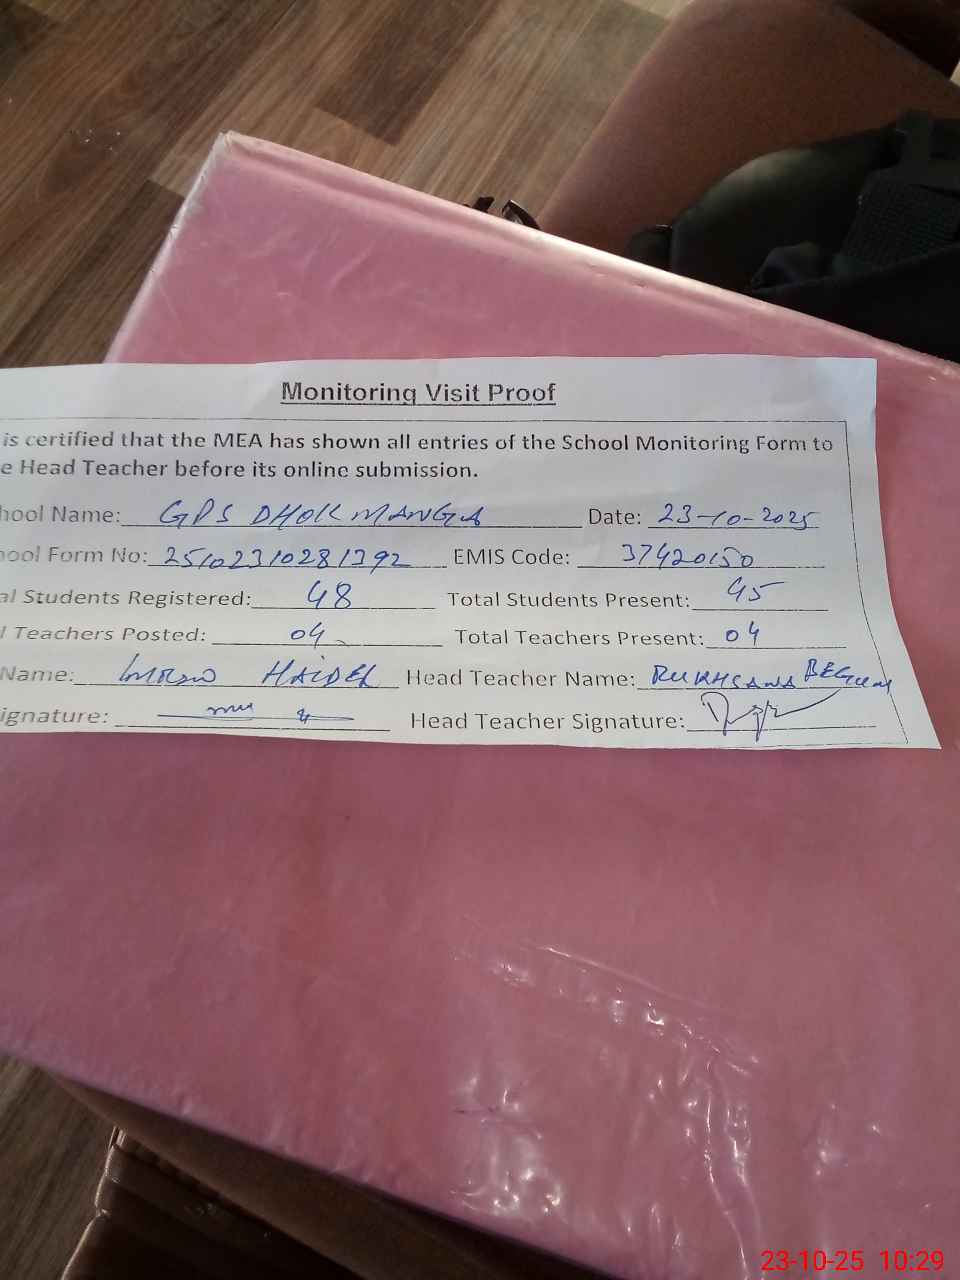 Monitoring Visit Proof
is certified that the MEA has shown all entries of the School Monitoring Form to
e Head Teacher before its online submission.
hool Name: GPS DHOK MANGA Date: 23-10-2025
ool Form No: 25102310281392 EMIS Code: 37420150
al Students Registered: 48 Total Students Present: 45
l Teachers Posted: 04 Total Teachers Present: 04
Name: HAIDER Head Teacher Name: RUKHSANA BEGUM
ignature: Head Teacher Signature:
23-10-25 10:29